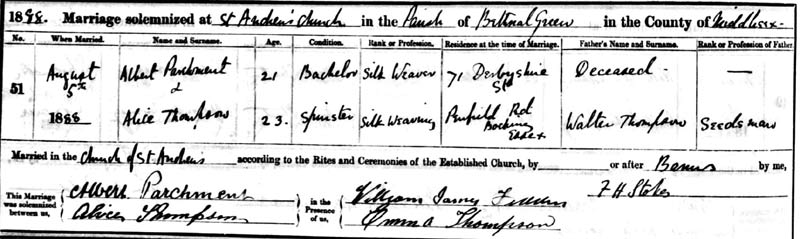 1888. Marriage solemnized at St Andrew's Church in the Parish of Bethnal Green in the County of Middlesex
No. When Married. Name and Surname. Age. Condition. Rank or Profession. Residence at the time of Marriage. Father's Name and Surname. Rank or Profession of Father.
51 August 5th 1888 Albert Parchment 21 Bachelor Silk Weaver 71 Derbyshire St Deceased —
& Alice Thompson 23. Spinster Silk Weaving Rd Bocking Essex Walter Thompson Seedsman
Married in the Church of St Andrew's according to the Rites and Ceremonies of the Established Church, by or after Banns by me,
This Marriage was solemnized between us, Albert Parchment in the Presence of us, William James F H Stokes
Alice Thompson Emma Thompson